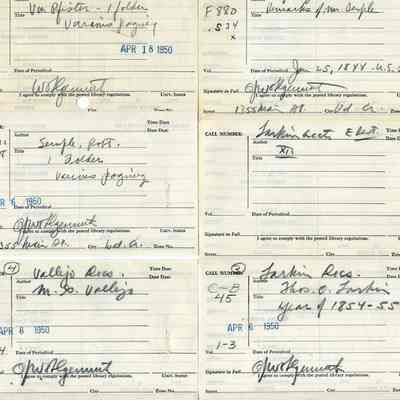 Van Pfister - 1 folder
Various paging
APR 18 1950
Date of Periodical
I agree to comply with the posted library regulations.
Univ. Status
F 880
.S34
x
Remarks of Mr. Semple
Vol.
Date of Periodical
Jan 25, 1844 - U.S.
Signature in Full
I agree to comply with the posted library regulations.
1355 Main St.
Time Due
Date Due
Author
Title
Semple, Robt.
1 folder
Various paging
APR 6 1950
Date of Periodical
I agree to comply with the posted library regulations.
Main St.
City
Zone No.
CALL NUMBER:
Time Due
Date Due:
Author
Title
Larkin
XII
Vol.
Date of Periodical
Signature in Full
I agree to comply with the posted library regulations.
Street
City
Zone No.
4
Vallejo Recs.
Time Due:
Date Due:
Author
M. G. Vallejo
Title
APR 6 1950
Date of Periodical
I agree to comply with the posted library regulations.
City
Zone No.
CALL NUMBER:
2
Larkin Recs.
Time Due:
Date Due:
C-B
45
Author
Thos. O. Larkin
Title
Year of 1854-55
APR 6 1950
Vol.
1-3
Date of Periodical
Signature in Full
I agree to comply with the posted library regulations.
Street
City
Zone No.